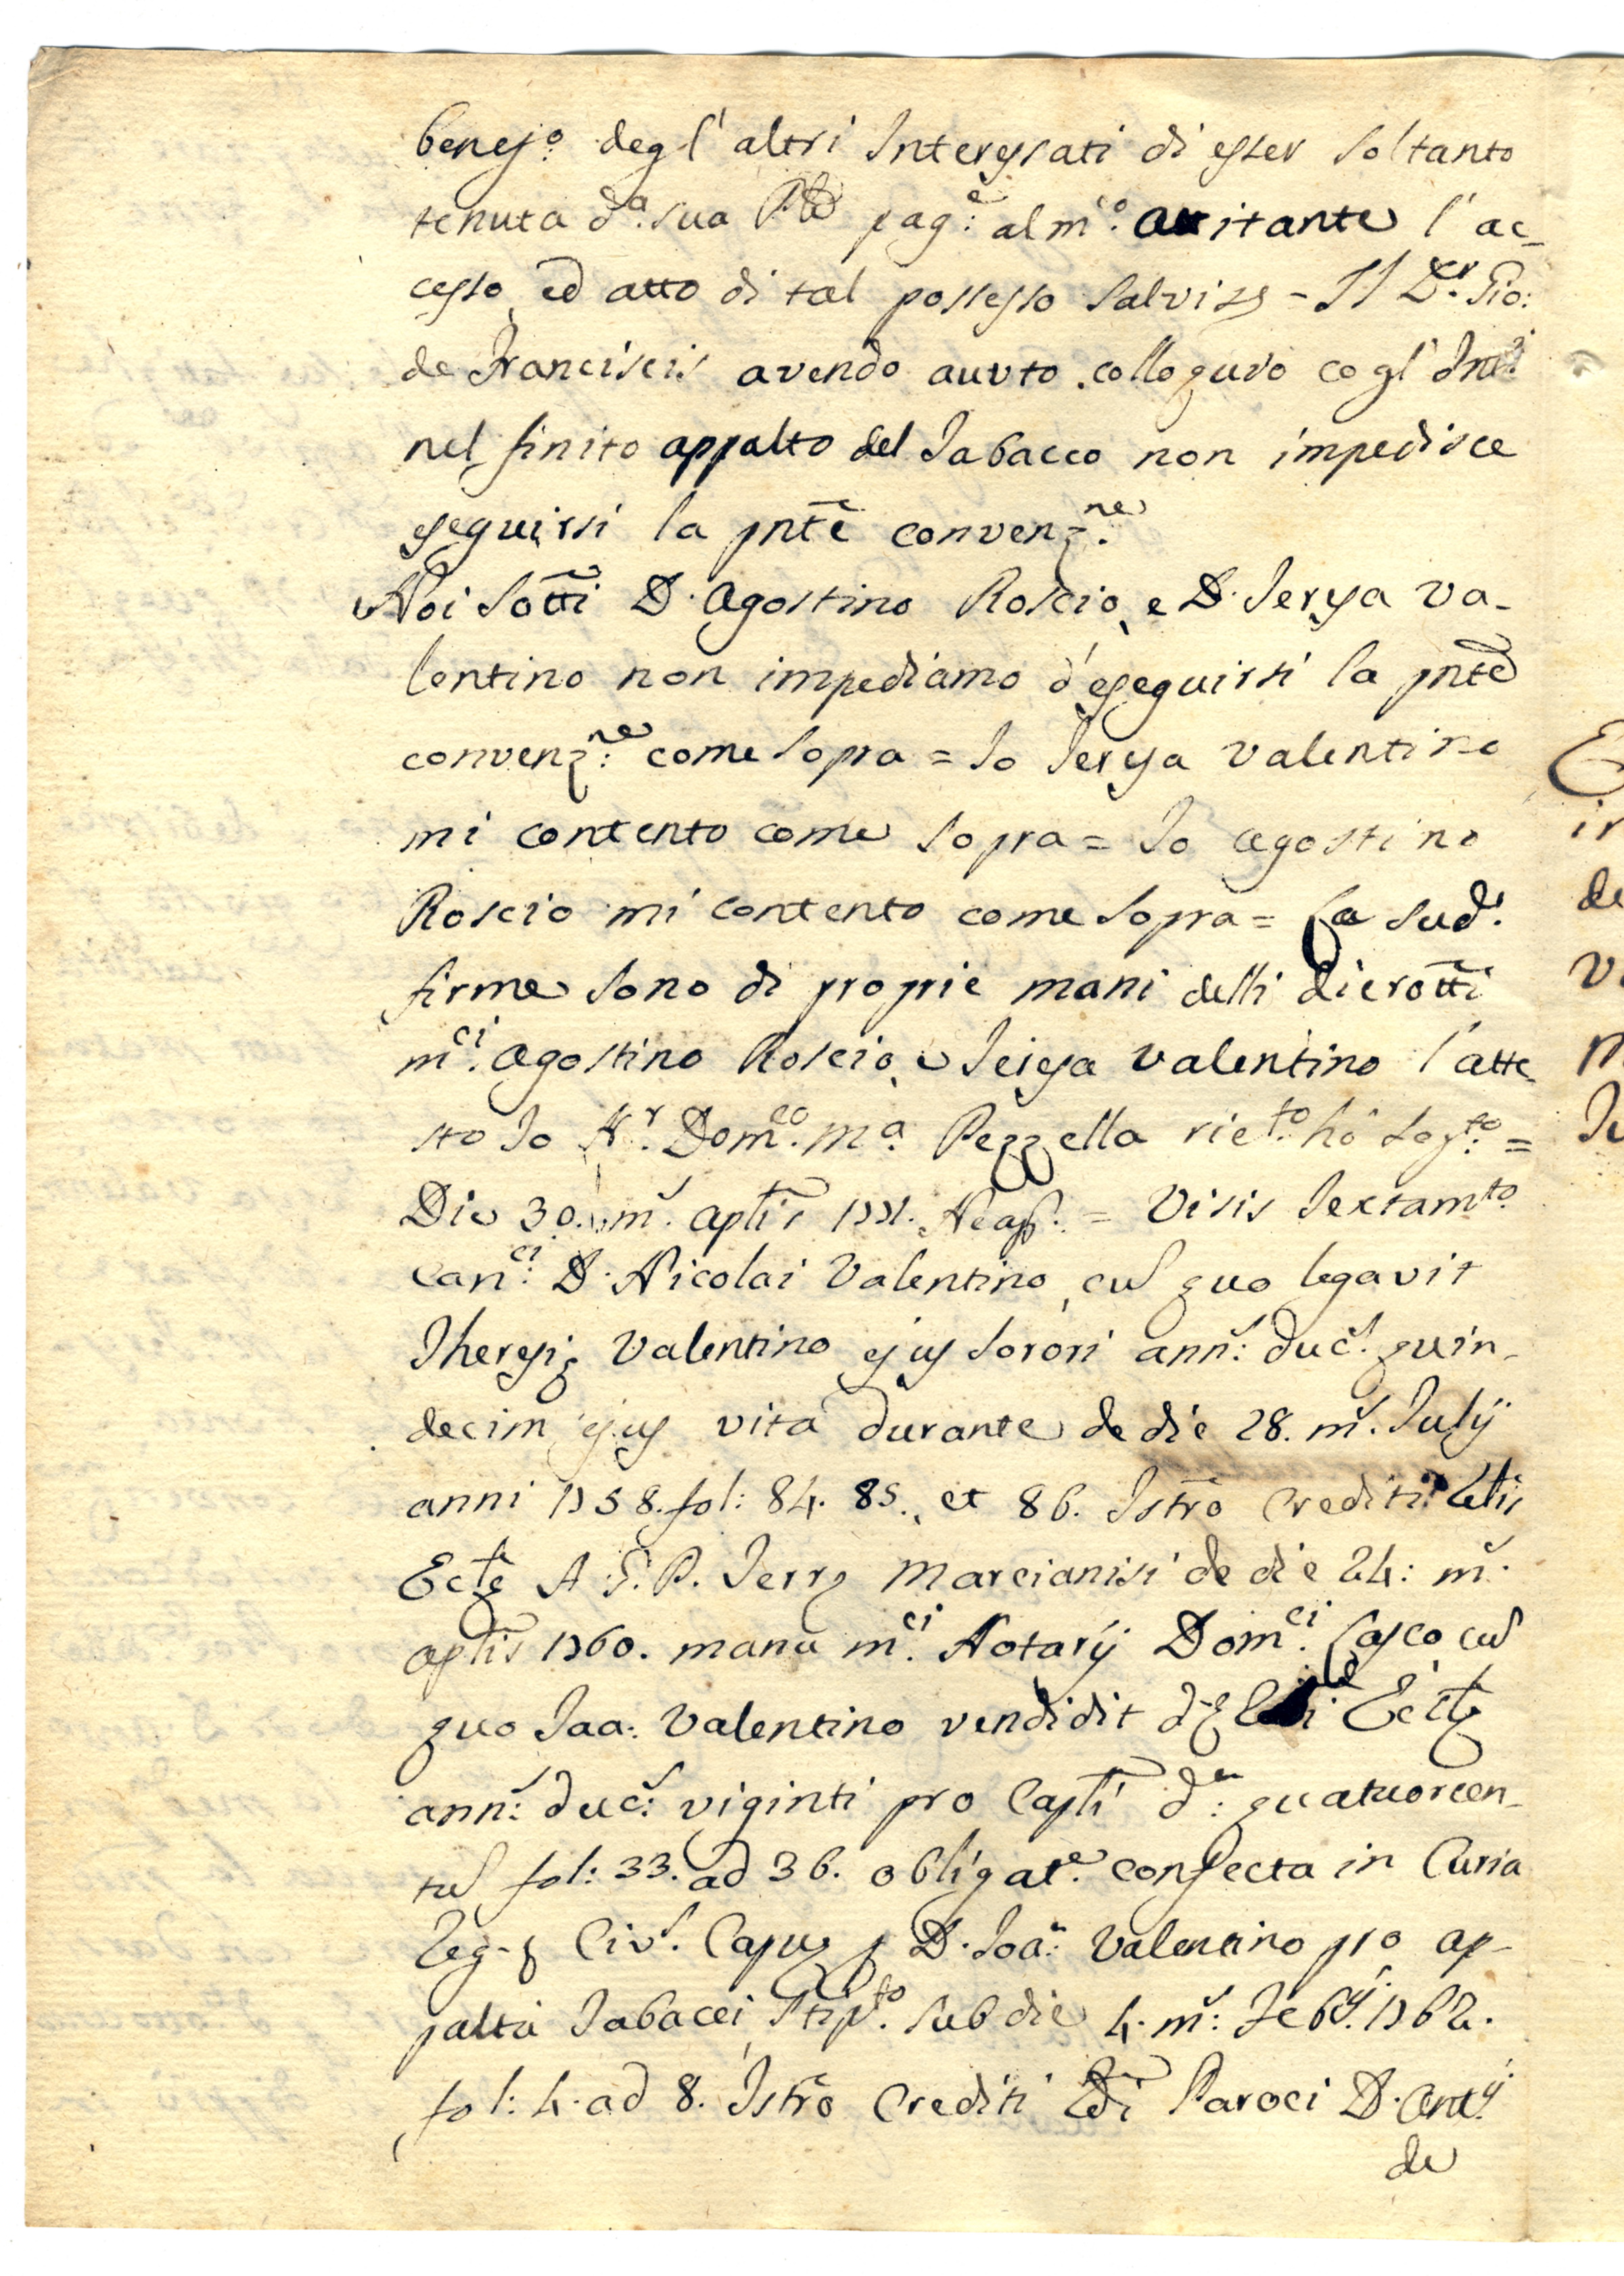 benefo: degl'altri Interessati di esser soltanto
tenuta da: sua Pte page: al mco: attitante l'ac-
cesso, ed atto di tal possesso salvis - Il Dr. Gio:
de Franciscis avendo auuto colloquio co gl'Inti
nel finito appalto del Tabacco non impedisce
seguirsi la pnte convenzne:
Noi sotti D. Agostino Roscio, e D. Teresa Va-
lentino non impediamo d'eseguirsi la pnte
convenzne: come sopra = Io Teresa Valentino
mi contento come sopra = Io Agostino
Roscio mi contento come sopra = Le sude.
firme sono di proprie mani delli dierotti
mci. Agostino Roscio, e Teresa Valentino l'atte-
sto Io Nr. Domco: Ma. Pezzella rieto: hò segto: =
Die 30. m. aplis 1771. Neap: = Visis Testamto
Canci: D. Nicolai Valentino, cu quo legavit
Theresię Valentino ejus sorori ann: duc: quin-
decim ejus vita durante de die 28. m. Julÿ
anni 1758. fol: 84. 85., et 86. Istro Crediti
Ecte A. G. P. Terrę Marcianisi de die 24: m.
aplis 1760. manu mci. Notarÿ Domci: Casco, cu
quo Jaa: Valentino vendidit dę Eccte
ann: duc: viginti pro Capti d: quatuorcen-
tu fol: 33. ad 36. obligate: confecta in Curia
Reg-ę Civ. Capuę p D. Joa: Valentino pro ap-
paltu Tabacci stipto: sub die 4. m: Feby: 1762.
fol: 4. ad 8. Istro Crediti Rdi Paroci D. Anty
de